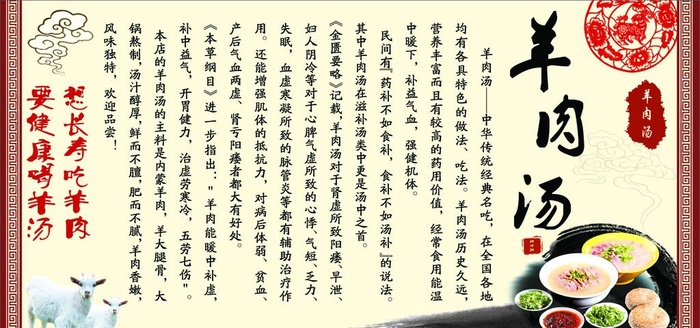 羊肉汤
羊肉汤
羊肉汤——中华传统经典名吃，在全国各地
均有各具特色的做法、吃法。羊肉汤历史久远，
营养丰富而且有较高的药用价值，经常食用能温
中暖下，补益气血，强健机体。
民间有『药补不如食补，食补不如汤补』的说法。
其中羊肉汤在滋补汤类中更是汤中之首。
《金匮要略》记载，羊肉汤对于肾虚所致阳痿、早泄、
妇人阴冷等对于心脾气虚所致的心悸、气短、乏力、
失眠，血虚寒凝所致的脉管炎等都有辅助治疗作
用。还能增强肌体的抵抗力，对病后体弱、贫血、
产后气血两虚、肾亏阳痿者都大有好处。
《本草纲目》进一步指出："羊肉能暖中补虚，
补中益气，开胃健力，治虚劳寒冷，五劳七伤"。
本店的羊肉汤的主料是内蒙羊肉，羊大腿骨，大
锅熬制，汤汁醇厚，鲜而不膻，肥而不腻，羊肉香嫩，
风味独特，欢迎品尝！
想长寿吃羊肉
要健康喝羊汤